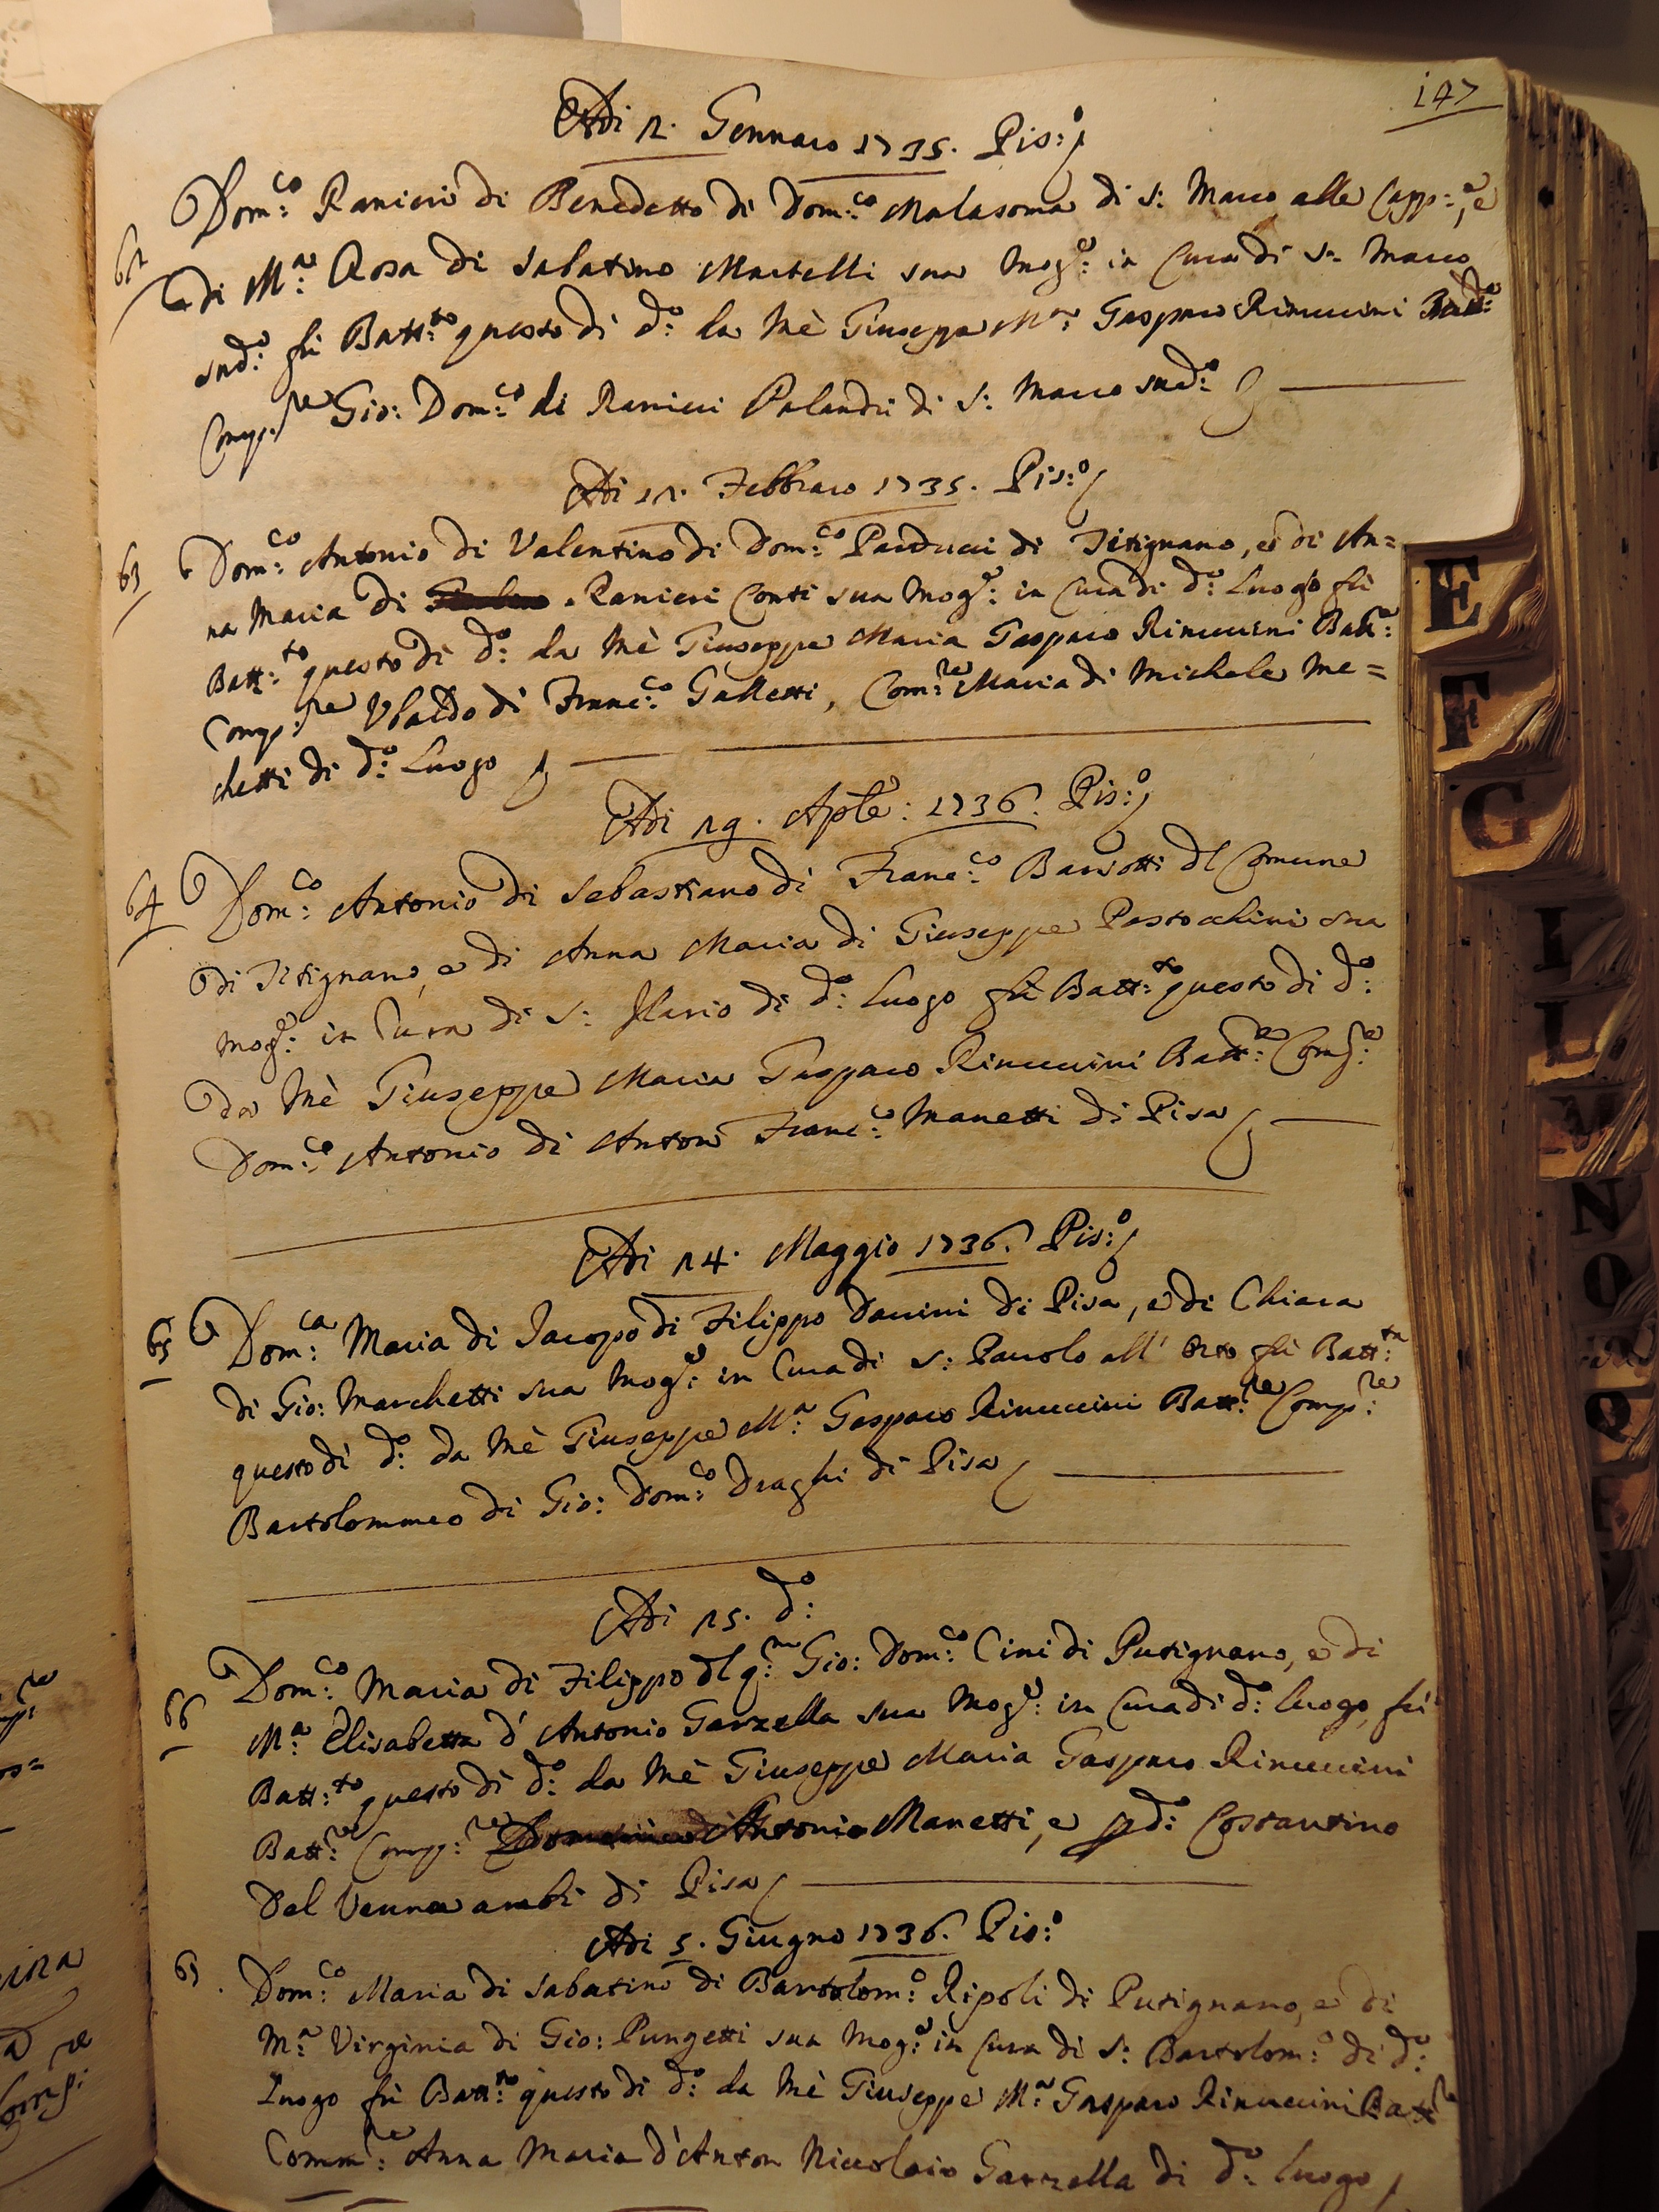 147
Adi 12. Gennaro 1735. Pis:o
62
Dom:co Ranieri di Benedetto di Dom:co Malasoma di S: Marco alle Capp:e, e
di M:a Rosa di Sabatino Martelli sua Mog:e in Cura di S: Marco
sud:o fù Batt:to questo dì d:o da Mè Giuseppe M:a Gasparo Rinuccini
Comp:re Gio: Dom:co di Ranieri Palandri di S: Marco sud:o
Adi 12. Febbraro 1735. Pis:o
63
Dom:co Antonio di Valentino di Dom:co Parducci di Titignano, e di An=
na Maria di Ranieri Conti sua Mog:e in Cura di d:o Luogo fù
Batt:to questo dì d:o da Mè Giuseppe Maria Gasparo Rinuccini Batt:re
Comp:re Ubaldo di Franc:co Galletti, Com:re Maria di Michele Me=
chetti di d:o Luogo
Adi 29. Aple: 1736. Pis:o
64
Dom:co Antonio di Sebastiano di Franc:co Barsotti dl Comune
di Titignano, e di Anna Maria di Giuseppe Pastochini sua
Mog:e in Cura di S: Ilario di d:o Luogo fù Batt:to questo dì d:o
da Mè Giuseppe Maria Gasparo Rinuccini Batt:re Comp:re
Dom:co Antonio di Anton Franc:co Manetti di Pisa
Adi 14. Maggio 1736. Pis:o
65
Dom:ca Maria di Jacopo di Filippo Danini di Pisa, e di Chiara
di Gio: Marchetti sua Mog:e in Cura di S: Pauolo all' Orto fù Batt:ta
questo dì d:o da Mè Giuseppe M:a Gasparo Rinuccini Batt:re Comp:re
Bartolommeo di Gio: Dom:co Draghi di Pisa
Adi 15. d:o
66
Dom:co Maria di Filippo dl q:m Gio: Dom:co Cini di Putignano, e di
M:a Elisabetta d' Antonio Garzella sua Mog:e in Cura di d:o luogo, fù
Batt:to questo dì d:o da Mè Giuseppe Maria Gasparo Rinuccini
Batt:re Comp:re Antonio Manetti, e p d:o Costantino
Del Venna ambi di Pisa
Adi 5. Giugno 1736. Pis:o
67
Dom:co Maria di Sabatino di Bartolom:o Ripoli di Putignano, e di
M:a Virginia di Gio: Pungetti sua Mog:e in Cura di S: Bartolom:o di d:o
Luogo fù Batt:to questo dì d:o da Mè Giuseppe M:a Gasparo Rinuccini Batt:re
Comm:re Anna Maria d'Anton Niccolaio Garzella di d:o luogo
E
F
G
I
L
N
O
P